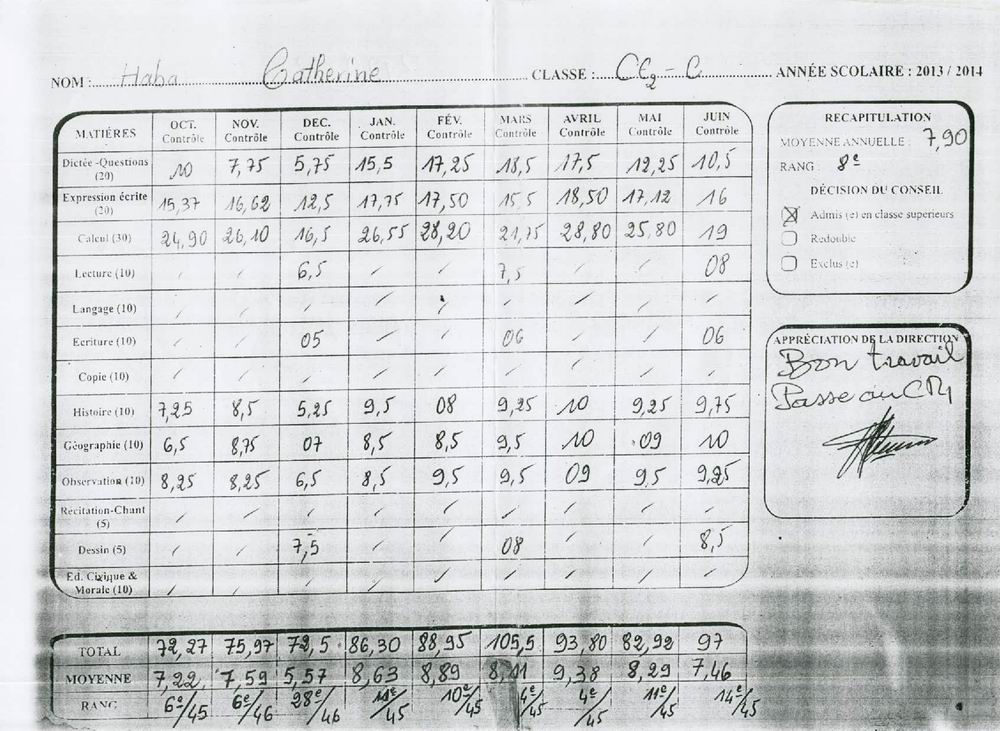 NOM : Haba Catherine CLASSE : CE2 - C ANNÉE SCOLAIRE : 2013 / 2014
MATIÉRES OCT. Contrôle NOV. Contrôle DEC. Contrôle JAN. Contrôle FÉV. Contrôle MARS Contrôle AVRIL Contrôle MAI Contrôle JUIN Contrôle
Dictée -Questions (20) 10 7,75 5,75 15,5 17,25 18,5 17,5 12,25 10,5
Expression écrite (20) 15,37 16,62 12,5 17,75 17,50 15 5 18,50 17,12 16
Calcul (30) 24,90 26,10 16,5 26,55 28,20 21,75 28,80 25,80 19
Lecture (10) / / 6,5 / / 7,5 / / 08
Langage (10) / / / / / / / / /
Ecriture (10) / / 05 / / 06 / / 06
Copie (10) / / / / / / / / /
Histoire (10) 7,25 8,5 5,25 9,5 08 9,25 10 9,25 9,75
Géographie (10) 6,5 8,75 07 8,5 8,5 9,5 10 09 10
Observation (10) 8,25 8,25 6,5 8,5 9,5 9,5 09 9,5 9,25
Récitation-Chant (5) / / / / / / / / /
Dessin (5) / / 7,5 / / 08 / / 8,5
Ed. Civique & Morale (10) / / / / / / / / /
TOTAL 72,27 75,97 72,5 86,30 88,95 105,5 93,80 82,92 97
MOYENNE 7,22 7,59 5,57 8,63 8,89 8,11 9,38 8,29 7,46
RANG 6e/45 6e/46 28e/46 11e/45 10e/45 4e/45 4e/45 11e/45 14e/45
RECAPITULATION
MOYENNE ANNUELLE : 7,90
RANG : 8e
DÉCISION DU CONSEIL
Admis (e) en classe superieurs
Redouble
Exclus (e)
APPRÉCIATION DE LA DIRECTION
Bon travail
Passe au CM1